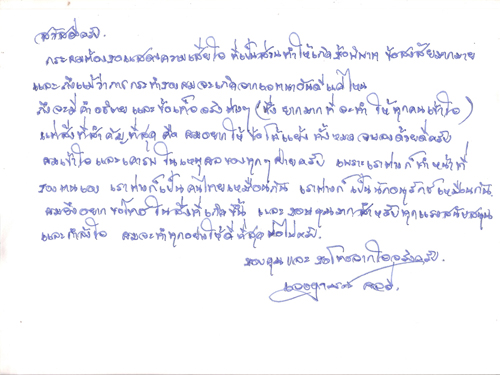 สวัสดีครับ
กระผมต้องขอแสดงความเสียใจ ที่เป็นส่วนทำให้เกิดข้อพิพาท ข้อสงสัยมากมาย
และถึงแม้ว่าการกระทำของผมจะเกิดจากเจตนาอันดีแค่ไหน
ถึงจะมีคำอธิบาย และข้อเท็จจริงต่างๆ (ซึ่งยากมากที่จะทำให้ทุกคนเข้าใจ)
แต่สิ่งที่สำคัญที่สุด คือ ผมอยากให้ข้อโต้แย้งทั้งหมดจบลงด้วยดีครับ
ผมเข้าใจ และเคารพในเหตุผลของทุกๆ ฝ่ายครับ เพราะเราต่างก็ทำหน้าที่
ของตนเอง เราต่างก็เป็นคนไทยเหมือนกัน เราต่างก็เป็นนักอนุรักษ์เหมือนกัน
ผมจึงอยากขอโทษในสิ่งที่เกิดขึ้น และขอบคุณมากสำหรับทุกแรงสนับสนุน
และกำลังใจ ผมจะทำทุกอย่างให้ดีที่สุดต่อไปครับ
ขอบคุณ และขอโทษจากใจจริงครับ